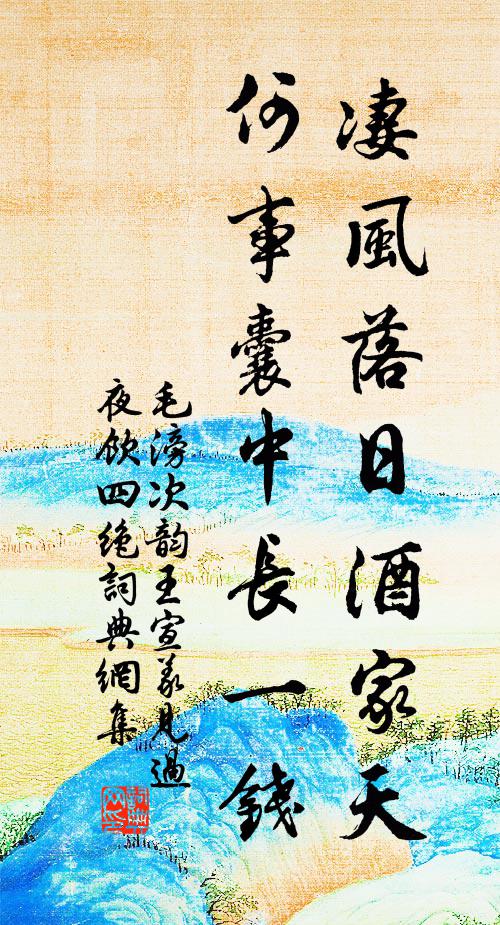 凄風落日酒家天
何事囊中長一錢
毛滂次韵王宣義見過
夜飲四絶詞典網集